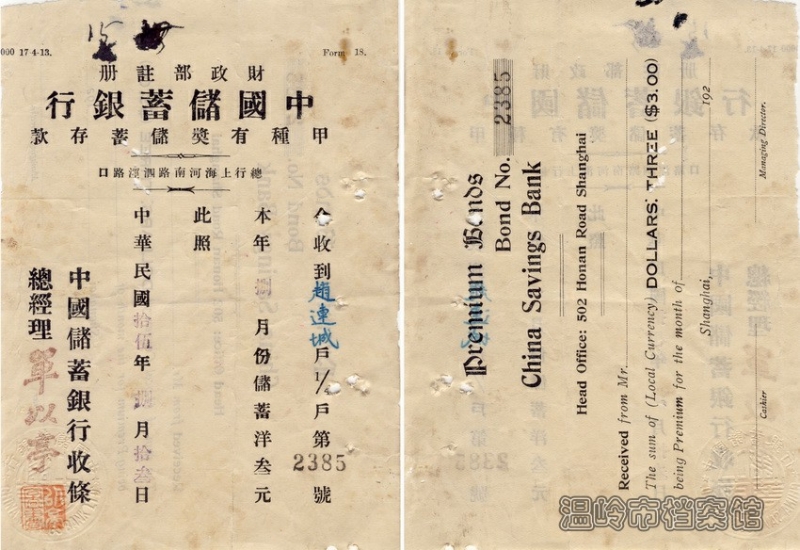 000 17-4-13.
Form 18.
財政部註册
中國儲蓄銀行
甲種有獎儲蓄存款
總行上海河南路泗涇路口
今收到趙連城戶1/戶第2385號
本年捌月份儲蓄洋叁元
此照
中華民國拾伍年捌月拾叁日
中國儲蓄銀行收條
總經理
Premium Bonds
Bond No. 2385
China Savings Bank
Head Office: 502 Honan Road Shanghai
Received from Mr.
The sum of (Local Currency) DOLLARS: THREE ($3.00)
being Premium for the month of
Shanghai, 192
Cashier
Managing Director.
温岭市档案馆